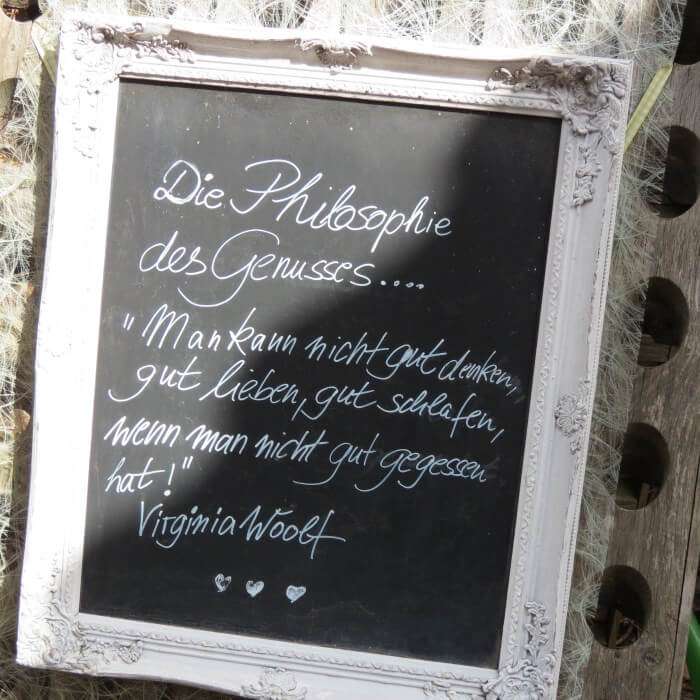 Die Philosophie
des Genusses....
"Man kann nicht gut denken,
gut lieben, gut schlafen,
wenn man nicht gut gegessen
hat!"
Virginia Woolf